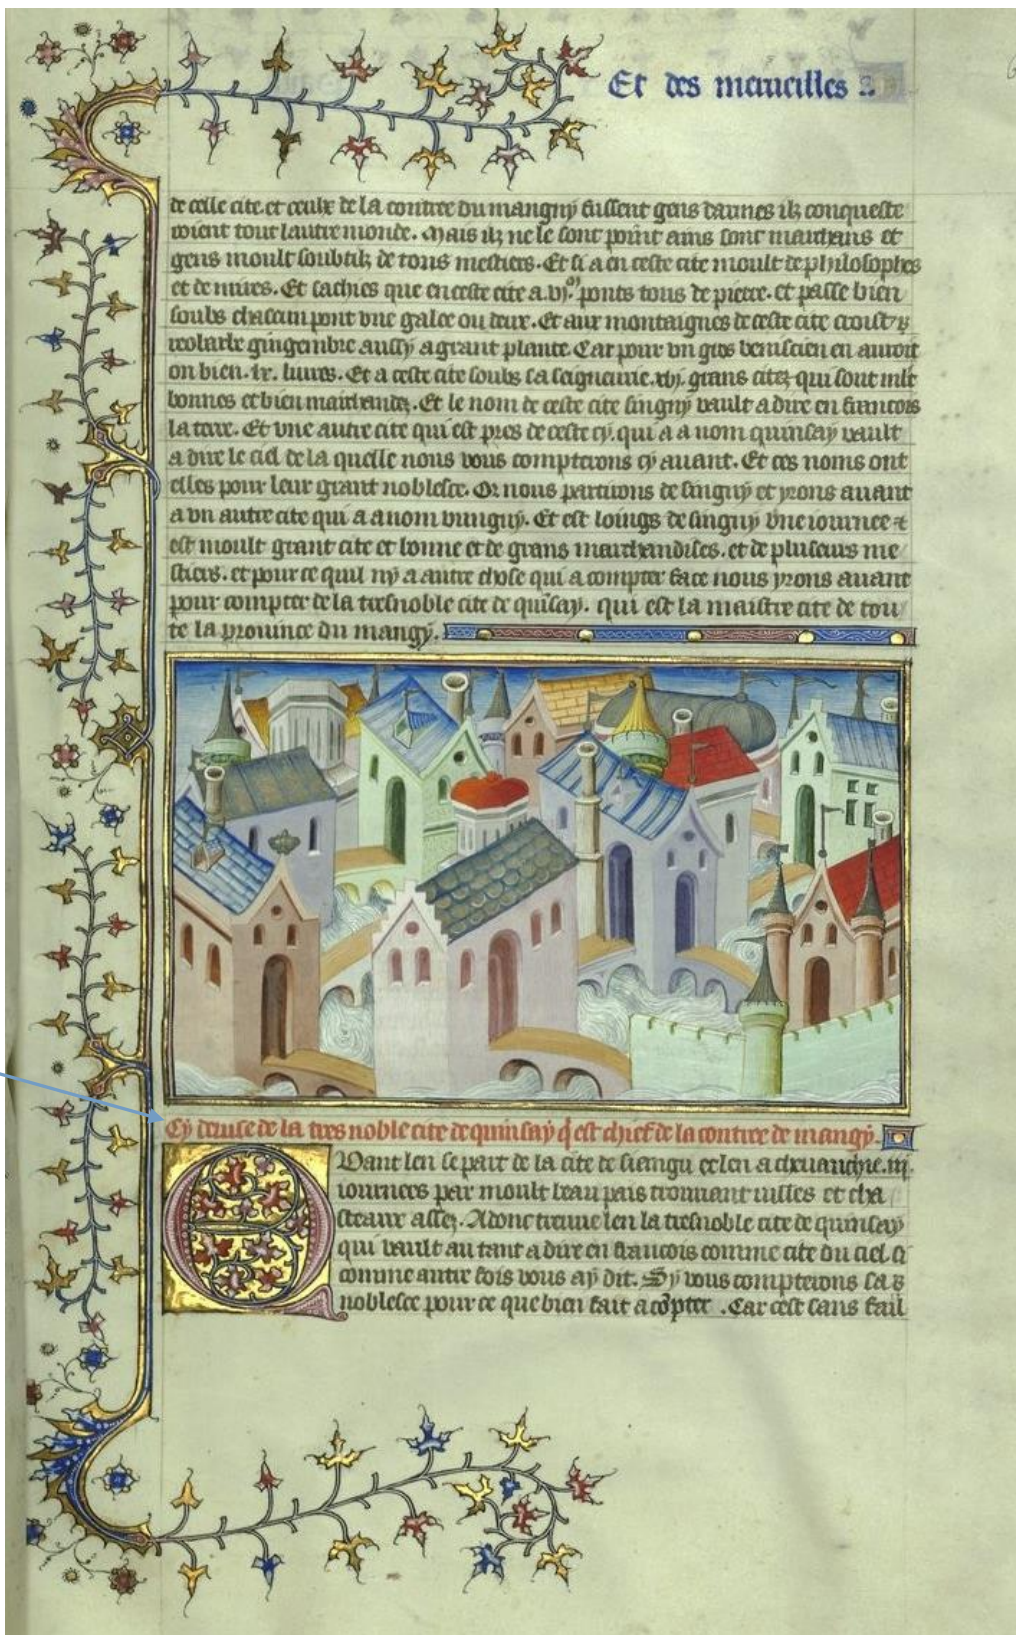 Et des merueilles
de celle cite. et ceulx de la contree du mangny fussent gens darmes ilz conqueste
roient tout lautre monde. Mais ilz ne le sont point ains sont marchans et
gens moult soubtilz de tous mestiers. Et si a en ceste cite moult de philosophes
et de mires. Et sachies que en ceste cite a .vjM. ponts tous de pierre. et passe bien
soubs chascun pont vne galee ou deux. Et aux montaignes de ceste cite croist
reobarbe gingembre aussy a grant plante. Car pour vn gros veniscien en auroit
on bien .lx. liures. Et a ceste cite soubs sa seigneurie .xvj. grans citez qui sont mlt
bonnes et bien marchandes. Et le nom de ceste cite singny vault a dire en francois
la terre. Et vne autre cite qui est pres de ceste cy. qui a a nom quinsay vault
a dire le ciel de la quelle nous vous compterons cy auant. Et ces noms ont
elles pour leur grant noblesce. Or nous partirons de singny et yrons auant
a vn autre cite qui a a nom vungny. Et est loings de singny vne iournee et
est moult grant cite et bonne et de grans marchandises. et de pluseurs me
stiers. et pour ce quil ny a autre chose qui a compter face nous yrons auant
pour compter de la tresnoble cite de quisay. qui est la maistre cite de tou
te la prouince du mangy.
Cy deuise de la tres noble cite de quinsay q est chief de la contree de mangy.
Quant len se part de la cite de siangu et len a cheuauchie .iij.
iournees par moult beau pais trouuant uilles et cha
steaux assez. Adonc treuue len la tresnoble cite de quinsay
qui vault au tant a dire en francois comme cite du ciel si
comme autre fois vous ay dit. Sy vous compterons sa
noblesce pour ce que bien fait a copter. Car cest sans fail